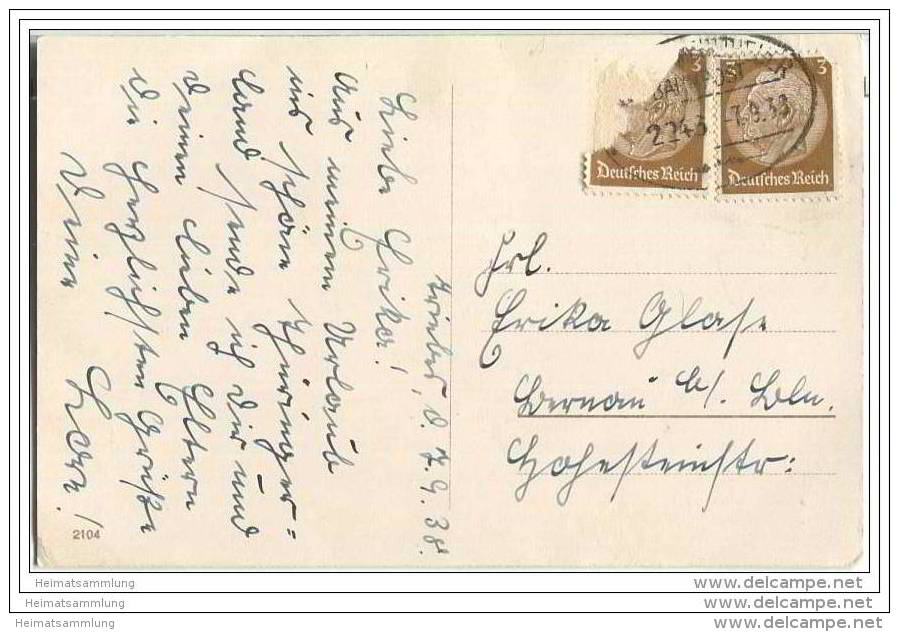 Triebes, d. 7.9.38.
Liebe Erika!
Aus meinem Urlaub
ins schöne Thüringer=
land sende ich Dir und
Deinen lieben Eltern
die herzlichsten Grüße
Dein
2104
3
3
2243
7.9.38
Deutsches Reich
Deutsches Reich
Frl.
Erika Glase
Bernau b/. Bln.
Hohesteinstr:
Heimatsammlung
Heimatsammlung
Heimatsammlung
www.delcampe.net
www.delcampe.net
www.delcampe.net